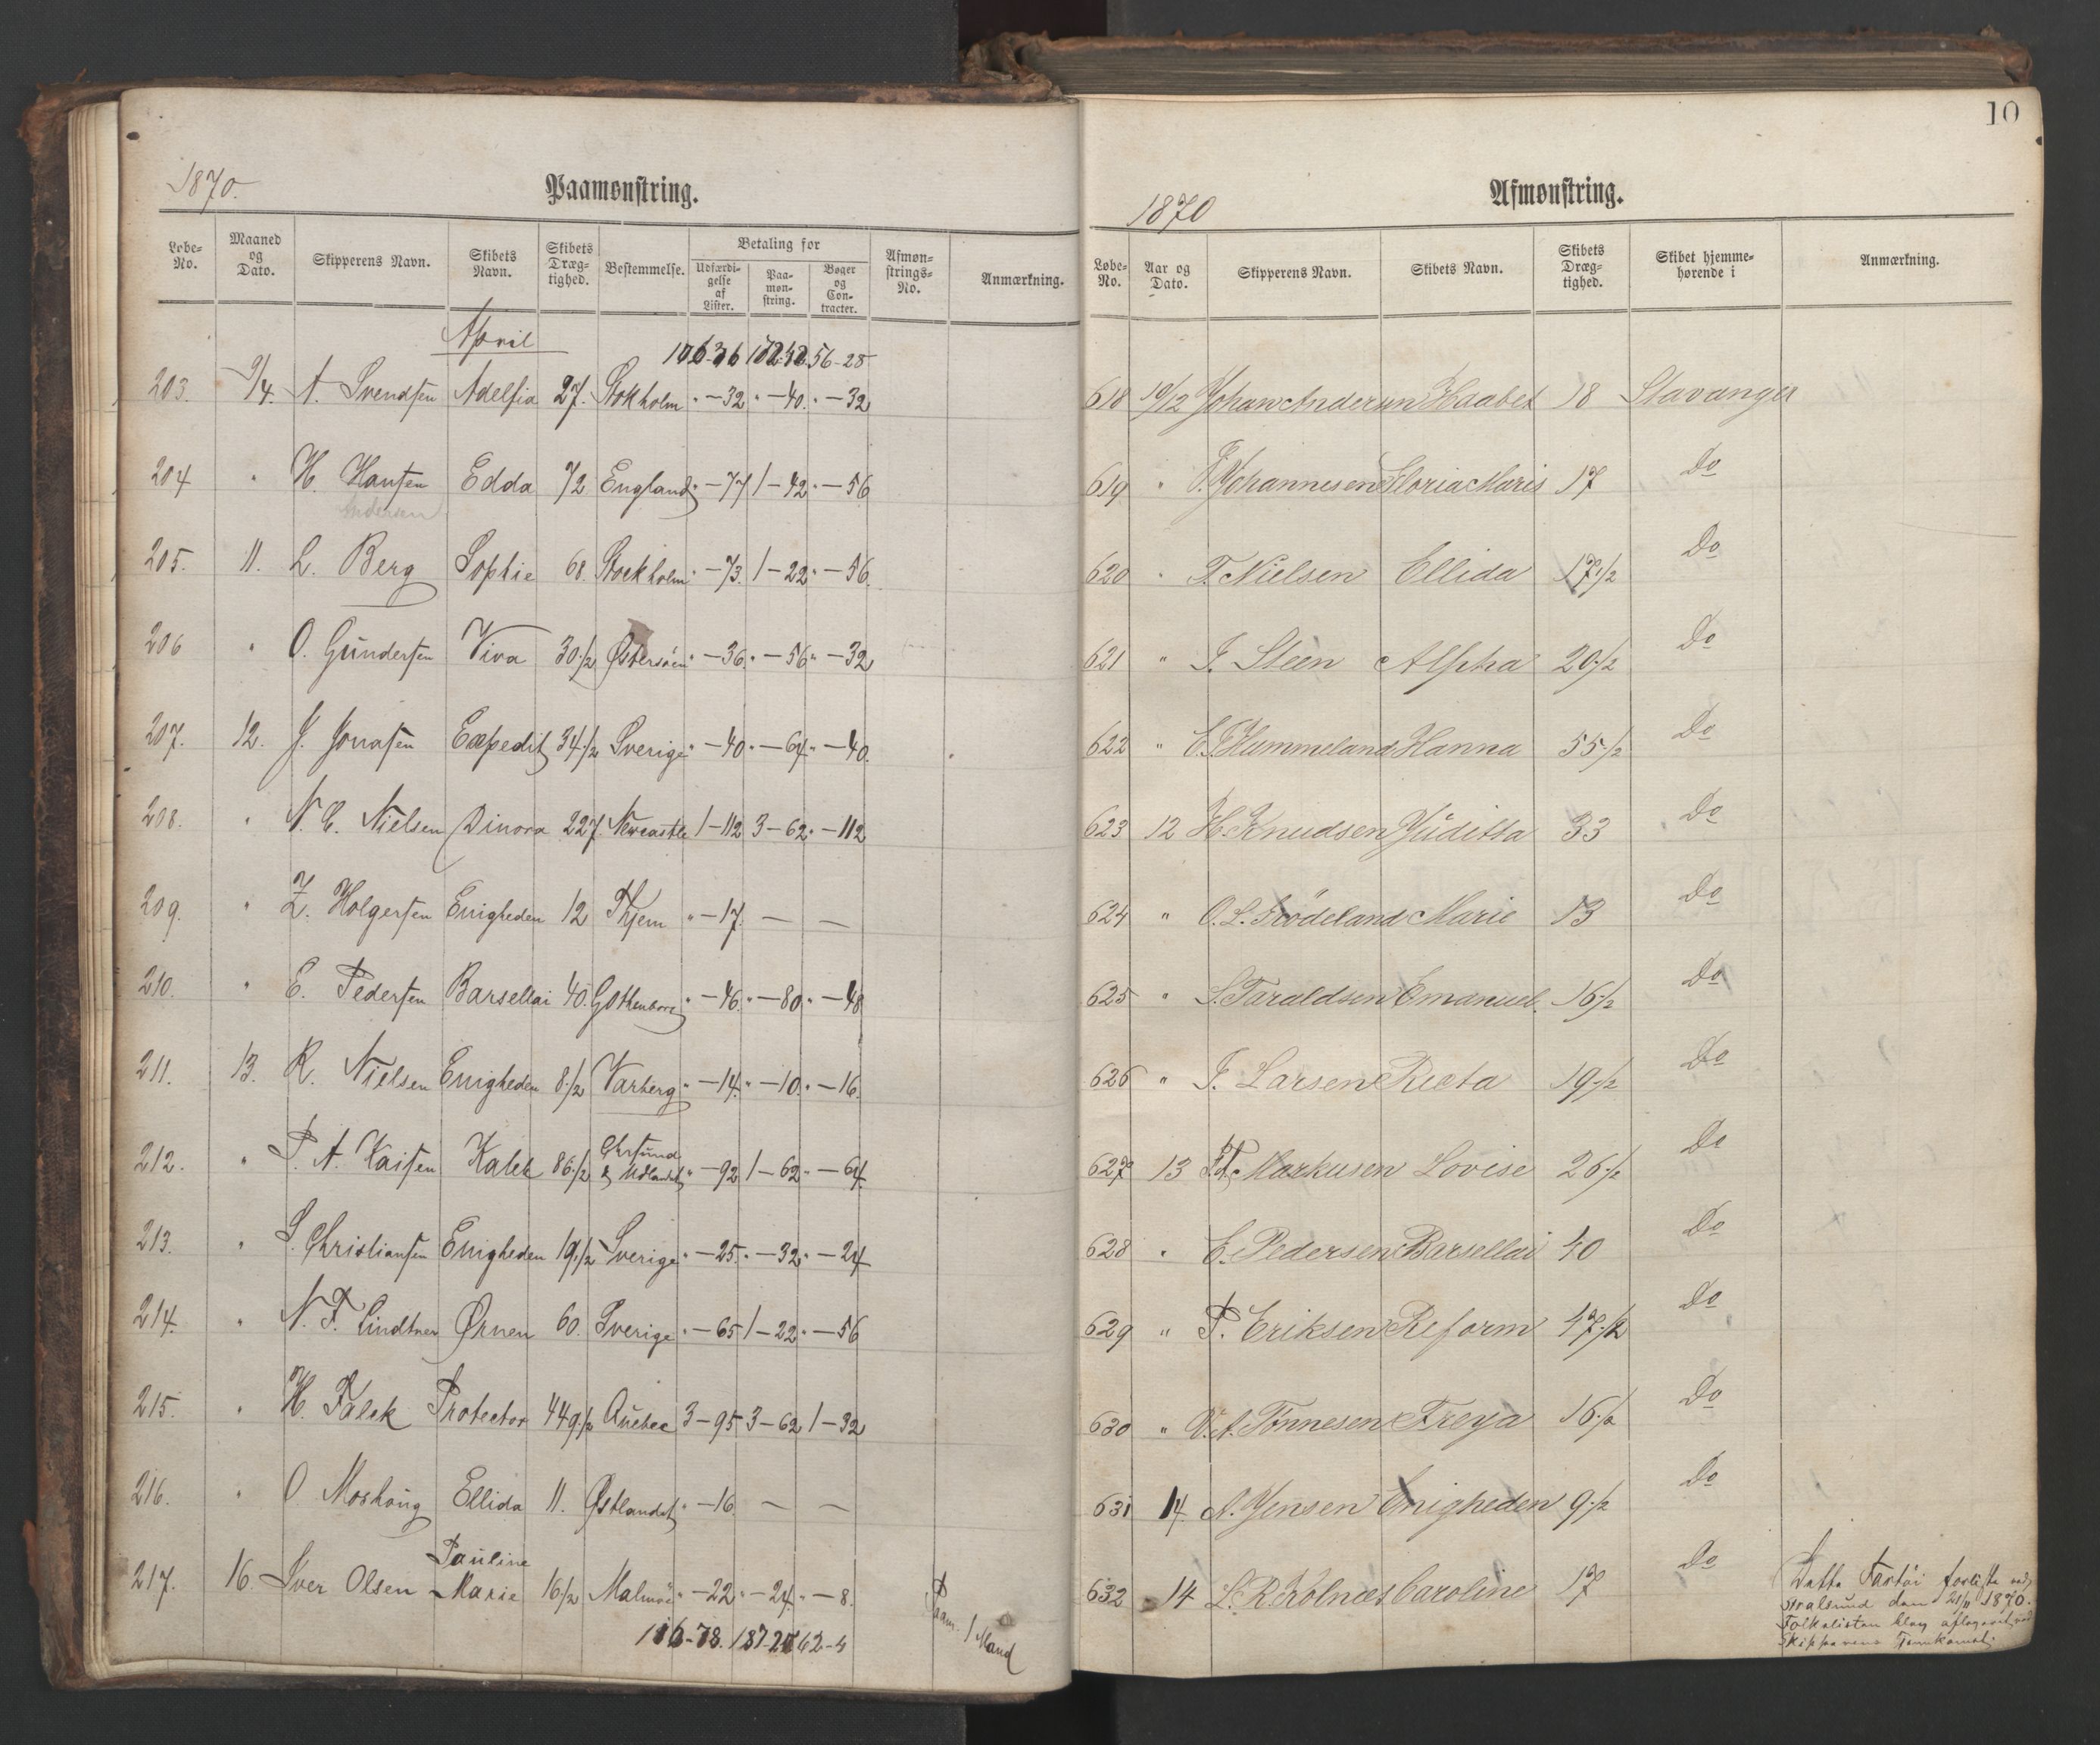 1870.
Paamønstring.
Løbe-No. Maaned og Dato. Skipperens Navn. Skibets Navn. Skibets Dræg-tighed. Bestemmelse. Betaling for Udfærdi-gelse af Lister. Paa-møn-string. Bøger og Con-tracter. Afmøn-strings-No. Anmærkning.
April
56-28
203. 9/4. A. Svendsen Adelfia 27. Stokholm " -32 " -40. " -32
204 " H. Hansen Edda 72 England " -77 1-42 " -56
Andersen
205. 11. L. Berg Sophie 68. Stockholm " -73. 1-22 " -56.
206 " O. Gundersen Viva 30 1/2 Østersöen " -36. " -56 " -32
207. 12. J. Jonasen Expedit 34 1/2 Sverige " -40 " -64 " -40.
208. " N. C. Nielsen Dinora 227. Newcastle 1-112 3-62 " -112
209. " Z. Holgersen Enigheden 12 Hjem " -17. — —
210. " E. Pedersen Barsellai 40. Gothenborg " -46. " -80 " -48
211. 13. R. Nielsen Enigheden 8 1/2 Varberg " -14. " -10. " -16.
212. " P. A. Kalek 86 1/2 Chrsund & Udlandet " -92 1-62 " -64.
213. " S. Christiansen Enigheden 19 1/2 Sverige " -25. " -32 " -24
214. " N. F. Lindtner Ørnen 60. Sverige " -65 1-22 " -56
215. " H. Falck Protector 449 1/2 Quebec 3-95 3-62 1-32
216. " O Moshaug Ellida 11. Østlandet " -16. — —
Pauline
217. 16. Iver Olsen Marie 16 1/2 Malmöe " -22 " -24. " -8.
62-4
Paam. 1 Mand
10
1870
Afmønstring.
Løbe-No. Aar og Dato. Skipperens Navn. Skibets Navn. Skibets Dræg-tighed. Skibet hjemme-hørende i Anmærkning.
618 10/12 Johan Andersen Haabet 18 Stavanger
619 " J. Johannesen Gloria Maris 17 Do
620 " T. Nielsen Ellida 17 1/2 Do
621 " J. Steen Alpha 20 1/2 Do
622 " Hummeland Hanna 55 1/2 Do
623 12 H. Knudsen Juditta 33 Do
624 " O. L. Frödeland Marie 13 Do
625 " S. Taraldsen Emanuel. 16 1/2 Do
626 " J. Larsen Recta 19 1/2 Do
627 13 Markusen Lovise 26 1/2 Do
628 " E. Pedersen Barsellai 40 Do
629 " P. Eriksen Reform 47 1/2 Do
630 " O. A. Tönnesen Freya 16 1/2 Do
631 14. A. Jensen Enigheden 9 1/2 Do
632 14 L. R. Kolnæs Caroline 17 Do
Dette Fartöi forliste ved
Stralsund den 21/11 1870.
Folkelisten blev aflagt ved
Skipperens Hjemkomst.